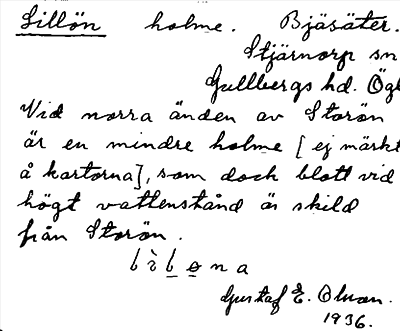 Sillön holme. Bjäsäter.
Stjärnorp sn
Gullbergs hd. Ögl
Vid norra änden av Storön
är en mindre holme [ej märkt
å kartorna], som dock blott vid
högt vattenstånd är skild
från Storön.
Gustaf E. Olson.
1936.